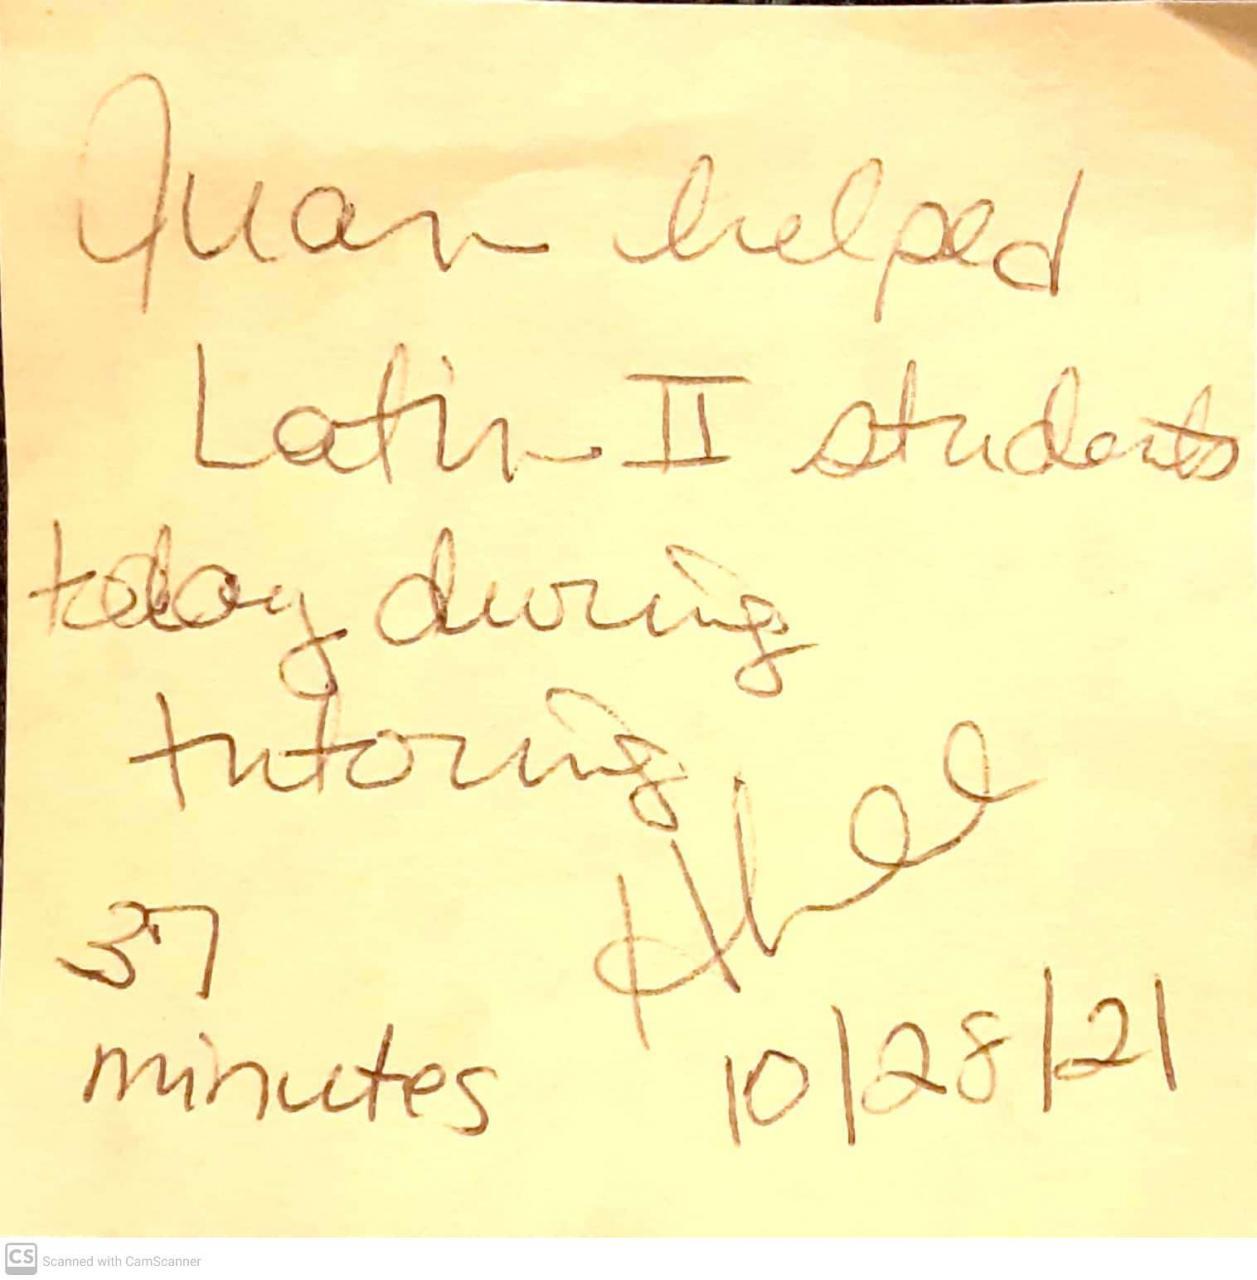 Juan helped
Latin II students
today during
tutoring
37
minutes
10/28/21
CS Scanned with CamScanner